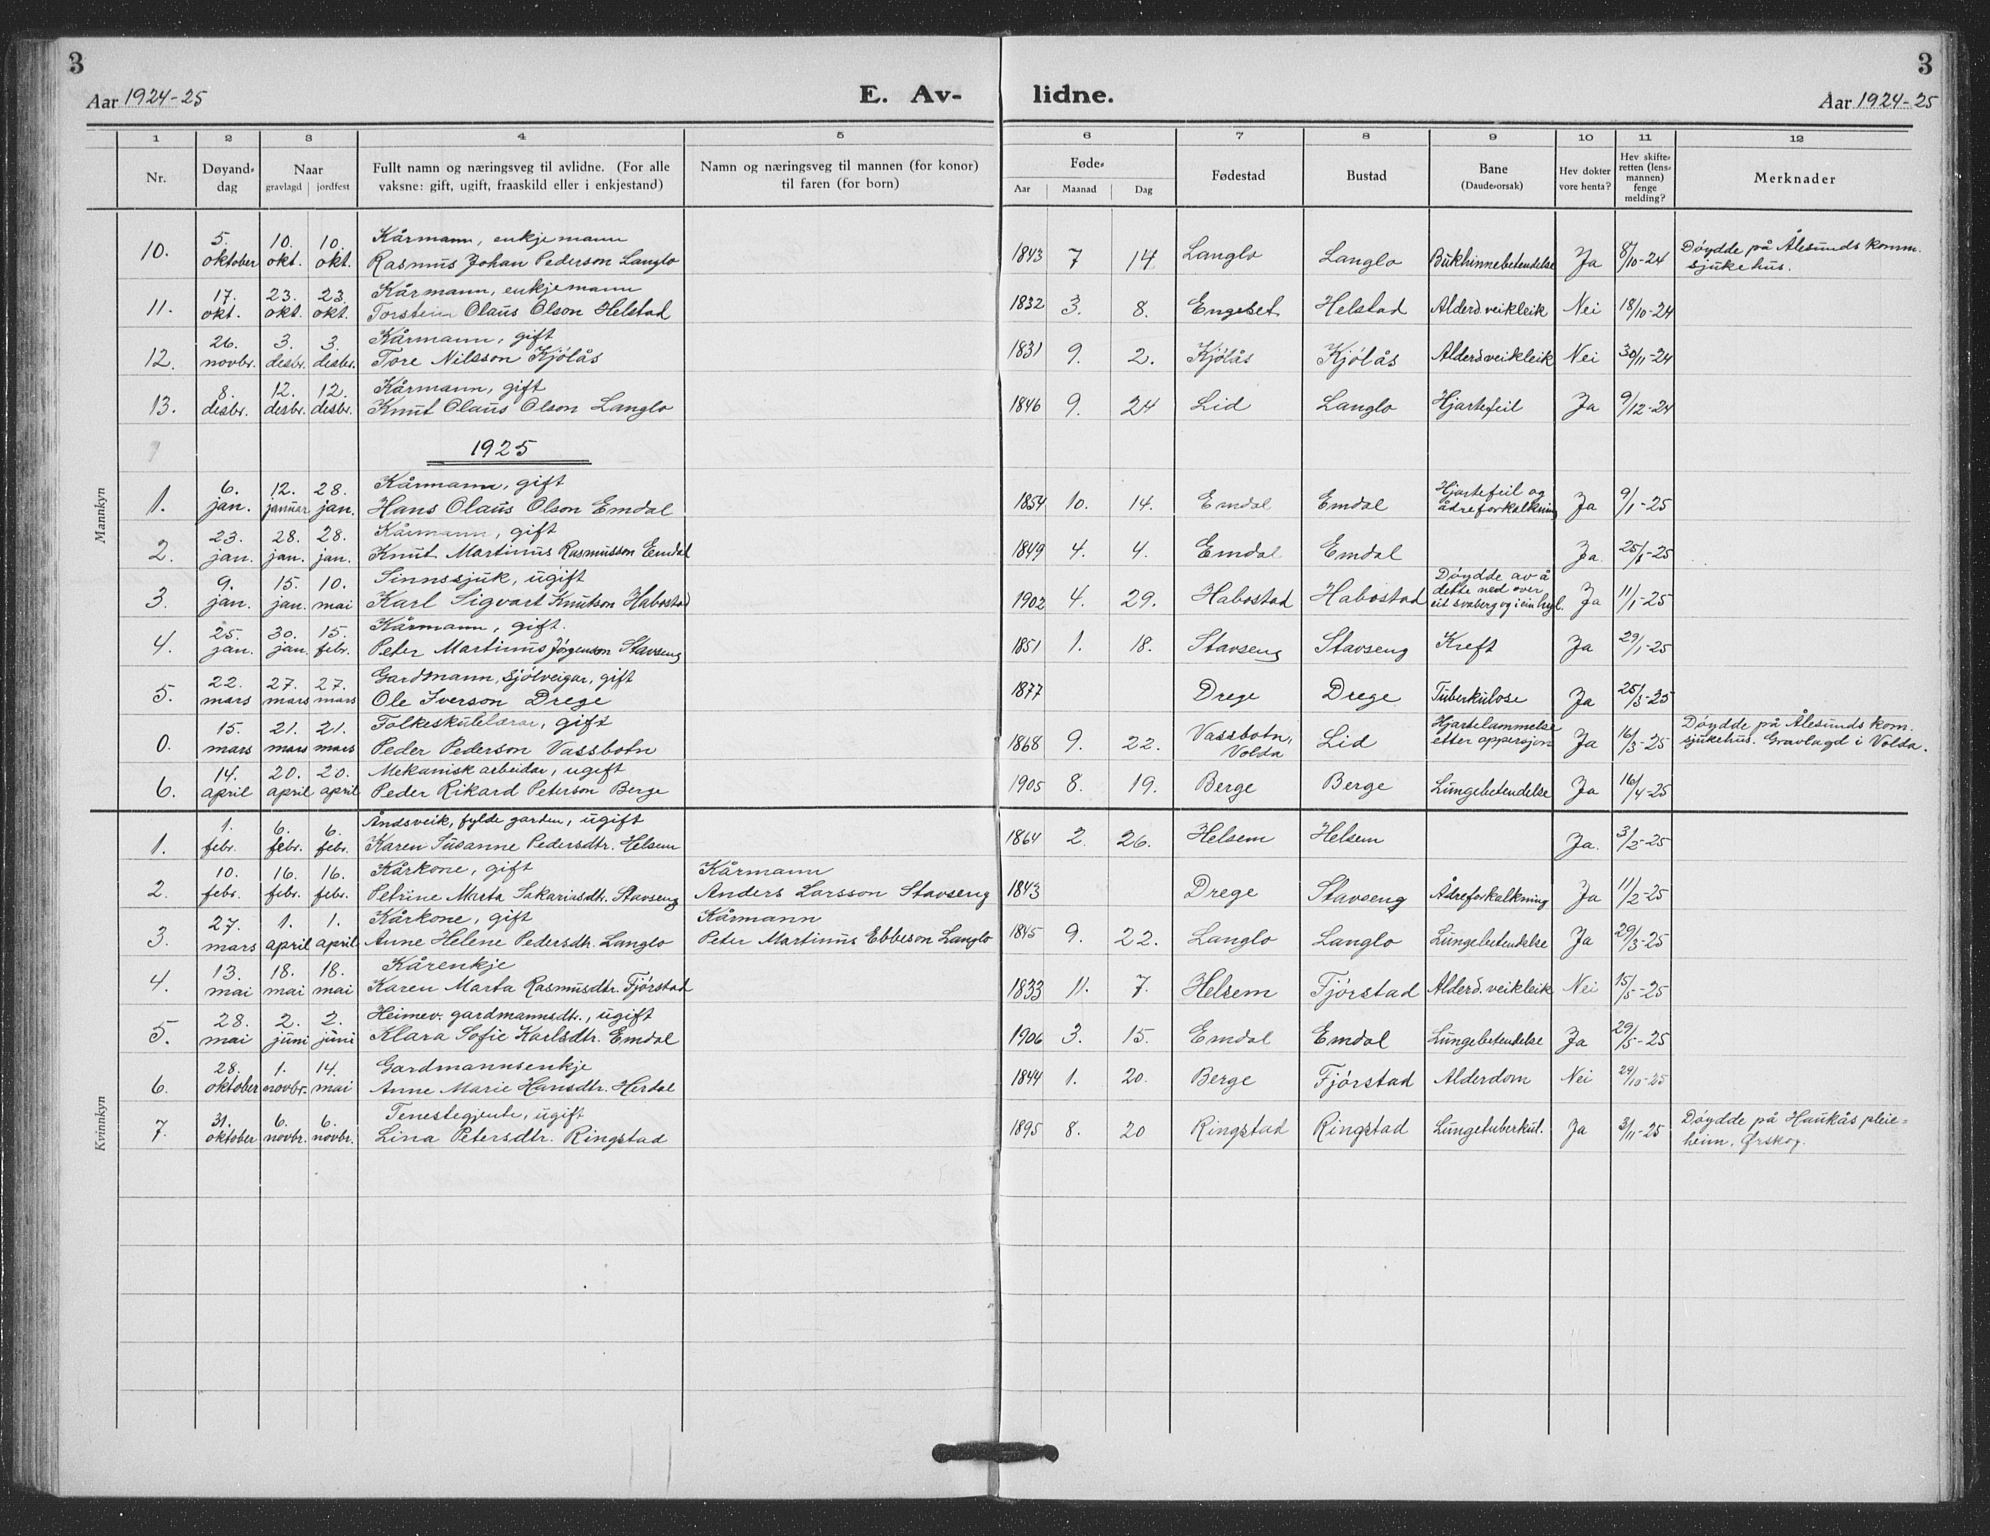 3
3
Aar 1924-25
E. Av-
lidne.
Aar 1924-25
1 2 3 4 5 6 7 8 9 10 11 12
Nr. Døyand-dag Naar gravlagd jordfest Fullt namn og næringsveg til avlidne. (For alle vaksne: gift, ugift, fraaskild eller i enkjestand) Namn og næringsveg til mannen (for konor) til faren (for born) Føde- Aar Maanad Dag Fødestad Bustad Bane (Daude-orsak) Hev dokter vore henta? Hev skifte-retten (lens-mannen) fenge melding? Merknader
Mannkyn
10. 5. oktober 10. okt. 10. okt. Kårmann, enkjemann Rasmus Johan Pederson Langlo 1843 7 14. Langlo Langlo Bukhinnebetendelse Ja 8/10-24 Døydde på Ålesunds komm. sjukehus.
11. 17. okt. 23. okt. 23. okt. Kårmann, enkjemann Torstein Olaus Olson Helstad 1832 3. 8. Engeset Helstad Alderd.veikleik Nei 18/10-24
12. 26. novbr. 3. desbr. 3. desbr. Kårmann, gift Tore Nilsson Kjølås 1831 9. 2. Kjølås Kjølås Alderdsveikleik Nei 30/11-24
13. 8. desbr. 12. desbr. 12. desbr. Kårmann, gift Knut Olaus Olson Langlo 1846 9. 24 Lid Langlo Hjartefeil Ja 9/12-24
1925
1. 6. jan. 12. januar 28. jan. Kårmann, gift Hans Olaus Olson Emdal 1854 10. 14. Emdal Emdal Hjartefeil og ådreforkalkning Ja 9/1-25
2. 23. jan. 28. jan. 28. jan. Kårmann, gift Knut Martinus Rasmusson Emdal 1849 4. 4. Emdal Emdal Ja. 25/1-25
3. 9. jan. 15. jan. 10. mai Sinnssjuk, ugift Karl Sigvart Knutson Habostad 1902 4. 29. Habostad Habostad Døydde av å dette ned over eit svaberg og i ein hyl. Ja 11/1-25
4. 25. jan. 30. jan. 15. febr. Kårmann, gift. Peter Martinus Jørgenson Stavseng 1851 1. 18. Stavseng Stavseng Kreft Ja 29/1-25
5. 22. mars 27. mars 27. mars Gardmann, sjølveigar, gift Ole Iverson Drege 1877 Drege Drege Tuberkulose Ja 25/3-25
0. 15. mars 21. mars 21. mars Folkeskulelærar, gift Peder Pederson Vassbotn 1868 9. 22. Vassbotn, Volda Lid Hjartelammelse etter opperasjon Ja 16/3-25 Døydde på Ålesunds kom. sjukehus. Gravlagd i Volda.
6. 14. april 20. april 20. april Mekanisk arbeidar, ugift Peder Rikard Peterson Berge 1905 8. 19. Berge Berge Lungebetendelse Ja 16/4-25
Kvinnkyn
1. 1. febr. 6. febr. 6. febr. Åndsveik, fylde garden, ugift Karen Susanne Pedersdtr. Helsem 1864 2. 26. Helsem Helsem Ja. 3/2-25
2. 10. febr. 16. febr. 16. febr. Kårkone, gift Petrine Marta Sakariasdtr. Stavseng Kårmann Anders Larsson Stavseng 1843 Drege Stavseng Ådreforkalkning Ja 11/2-25
3. 27. mars 1. april 1. april Kårkone, gift Anne Helene Pedersdtr. Langlo Kårmann Peter Martinus Ebbeson Langlo 1845 9. 22. Langlo Langlo Lungebetendelse Ja 29/3-25
4. 13. mai 18. mai 18. mai Kårenkje Karen Marta Rasmusdtr. Fjørstad 1833 11. 7. Helsem Fjørstad Alderd.veikleik Nei 15/5-25
5. 28. mai 2. juni 2. juni Heimev. gardmannsdtr., ugift Klara Sofie Karlsdtr. Emdal 1906 3. 15. Emdal Emdal Lungebetendelse Ja 29/5-25
6. 28. oktober 1. novbr. 14. mai Gardmannsenkje Anne Marie Hansdtr. Herdal 1844 1. 20. Berge Fjørstad Alderdom Nei 29/10-25
7. 31. oktober 6. novbr. 6. novbr. Tenestegjente, ugift Lina Petersdtr. Ringstad 1895 8. 20 Ringstad Ringstad Lungetuberkul. Ja 3/11-25 Døydde på Haukås pleie-heim, Ørskog.